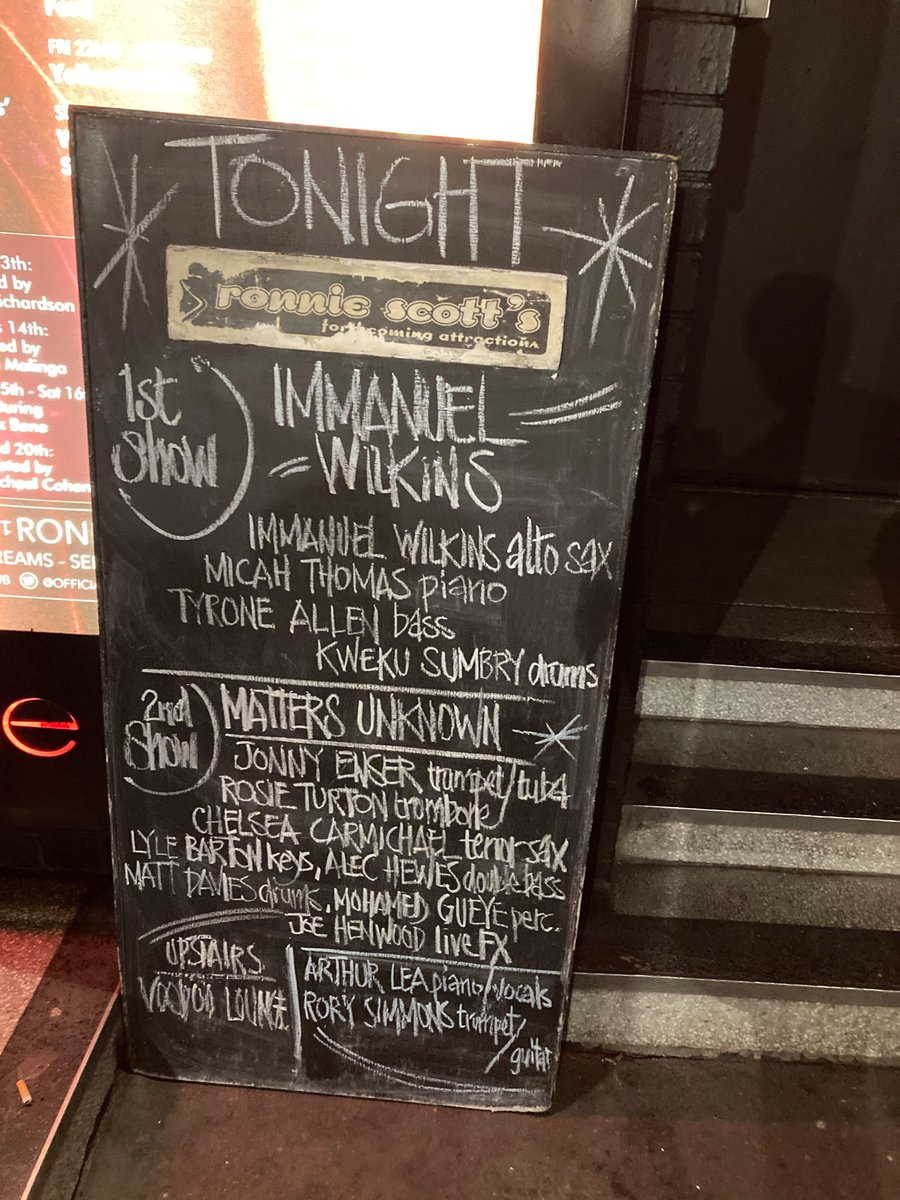 FRI 22
3th:
d by
ichardson
s 14th:
ed by
Malinga
5th - Sat 16
uring
x Bone
d 20th:
ated by
chael Cohen
T RONN
REAMS - SE
UB @OFFICIA
TONIGHT
ronnie scott's
forthcoming attractions
1st Show
IMMANUEL
WILKINS
IMMANUEL WILKINS alto sax
MICAH THOMAS piano
TYRONE ALLEN bass
KWEKU SUMBRY drums
2nd Show
MATTERS UNKNOWN
JONNY ENSER trumpet/tuba
ROSIE TURTON trombone
CHELSEA CARMICHAEL tenor sax
LYLE BARTON keys, ALEC HEWES double bass
MATT DAVIES drums, MOHAMED GUEYE perc.
JOE HENWOOD live FX
UPSTAIRS
VOODOO LOUNGE
ARTHUR LEA piano/vocals
RORY SIMMONS trumpet/
guitar